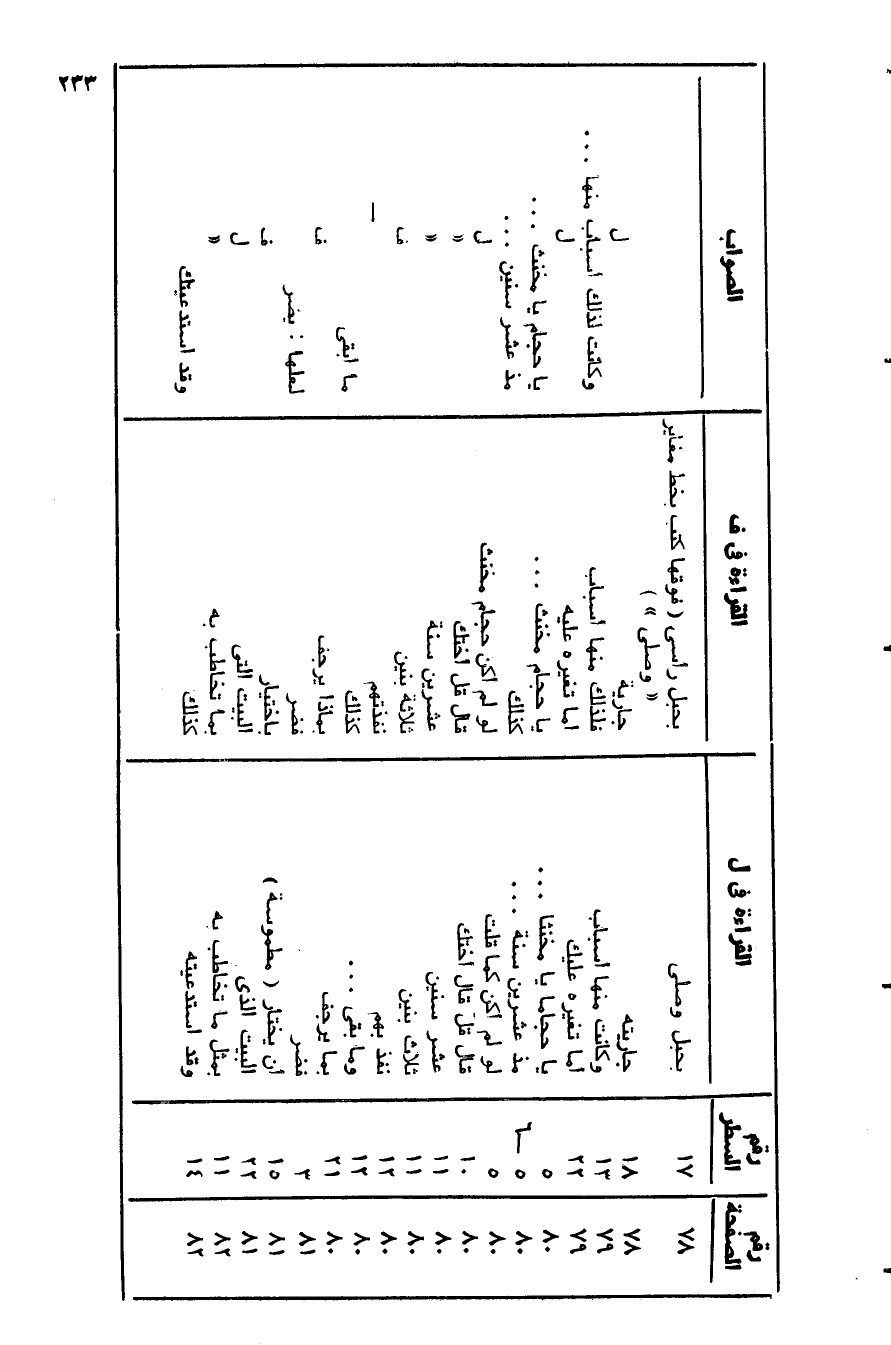 رقم الصفحة رقم السطر القراءة فى ل القراءة فى ف الصواب
٧٨ ١٧ بحبل وصلى بحبل رأسى ( فوقها كتب بخط مغاير
« وصلى » )
٧٨ ١٨ جاريته جارية ل
٧٩ ١٣ وكانت منها أسباب فلذلك منها أسباب وكانت لذلك أسباب منها ...
٧٩ ٢٢ أما تغيره عليك أما تغيره عليه ل
٨٠ ٥ يا حجاما يا مخنثا ... يا حجام مخنث ... يا حجام يا مخنث ...
٨٠ ٥ — ٦ مذ عشرين سنة ... كذلك مذ عشر سنين ...
٨٠ ٥ لو لم أكن كما قلت لو لم أكن حجام مخنث ل
٨٠ ١٠ قال قل قال أختك قال قل أختك »
٨٠ ١١ عشر سنين عشرين سنة »
٨٠ ١١ ثلاث بنين ثلاثة بنين ف
٨٠ ١٢ نفذ بهم نفذتهم —
٨٠ ١٢ وما بقى ... كذلك ما أبقى
٨٠ ٢١ بما يرجف بماذا يرجف ف
٨١ ٣ فضر فضر لعلها : يضر
٨١ ١٥ أن يختار ( مطموسة ) باختيار ف
٨١ ٢٢ البيت الذى البيت التى ل
٨٢ ١١ بمثل ما تخاطب به بما تخاطب به »
٨٢ ١٤ وقد استدعيته كذلك وقد استدعيتك
٢٣٣